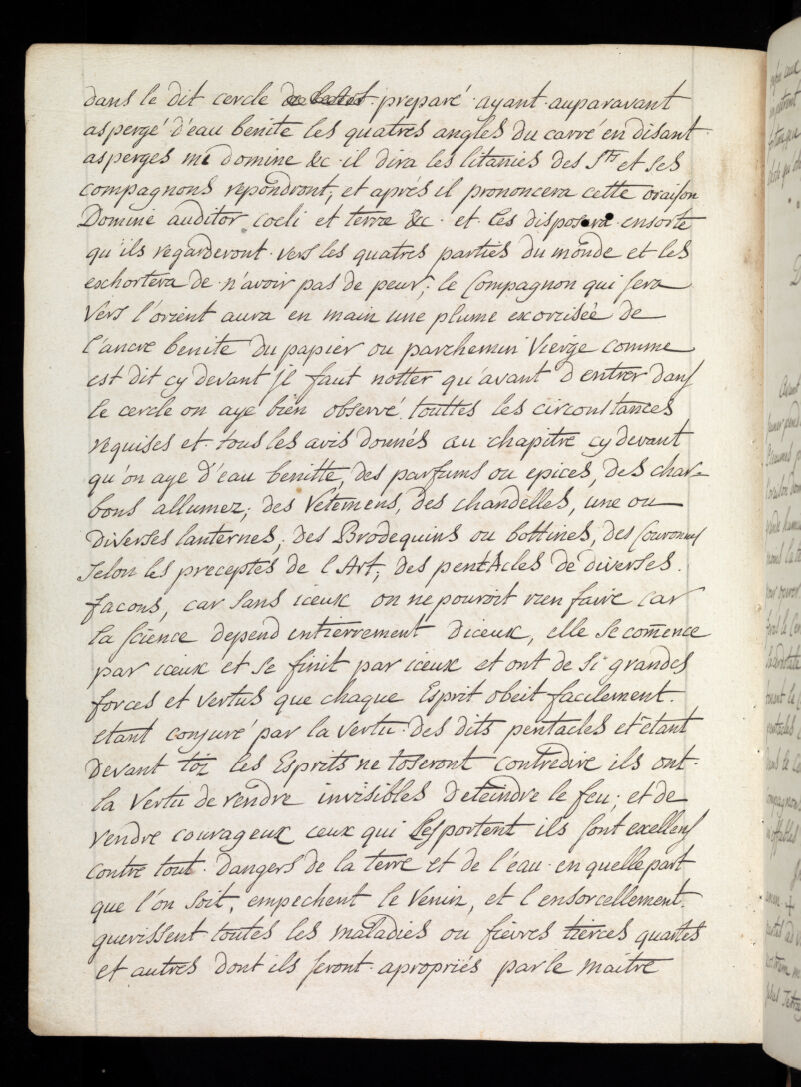 dans le dit cercle preparé ayant auparavant
aspergé d'eau benite les quatres angles du carré en disant
asperges me domine &c il dira les litanies des Sts et ses
compagnons repondront, et aprés il prononcera cette oraison
Domine auditor coeli et terræ &c. et les disposera ensorte
qu'ils regarderont vers les quatres parties du monde et les
exhortera de n'avoir pas de peur; le Compagnon qui sera
vers l'orient aura en main une plume exorcisée de
l'ancre benite du papier ou parchemin Vierge comme
est dit cy devant jl faut notter qu'avant d'entrer dans
le cercle on aye bien observé touttes les circonstances
requises et tous les avis donnés au chapitre cy devant
qu'on aye d'eau benitte, des parfums ou epices, des char-
bons allumez; des Vetemens, des chandelles, une ou
diverses lanternes; des Brodequins ou bottines, des Couronnes
selon les preceptes de l'Art, des pentacles de diverses
facons, car sans iceux on ne pouroit rien faire car
la science depend entierrement diceux, elle se com̃ence
par iceux et se finit par iceux et ont de si grandes
forces et vertus que chaque Esprit obeit facilement
etant conjuré par la vertu des dits pentacles et étant
devant toi les Esprits ne toseront contredire ils ont
la vertu de rendre invisibles deteindre le feu; et de
rendre courageux ceux qui les portent ils sont exellens
contre tout dangers de la terre et de l'eau en quelle part
que l'on soit, empechent le venin, et l'ensorcellement
guerissent toutes les maladies ou fievres tierces quartes
et autres dont ils seront apropriés par le maitre